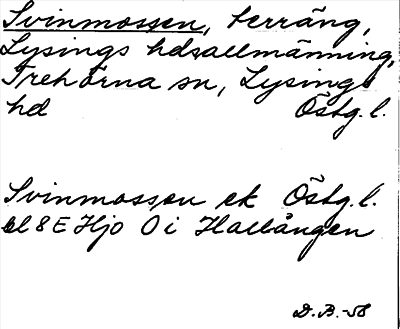 Svinmossen, terräng,
Lysings hdsallmänning,
Trehörna sn, Lysings
hd Östg. l.
Svinmossen ek Östg. l.
bl 8E Hjo O i Hallången
D.B.-58